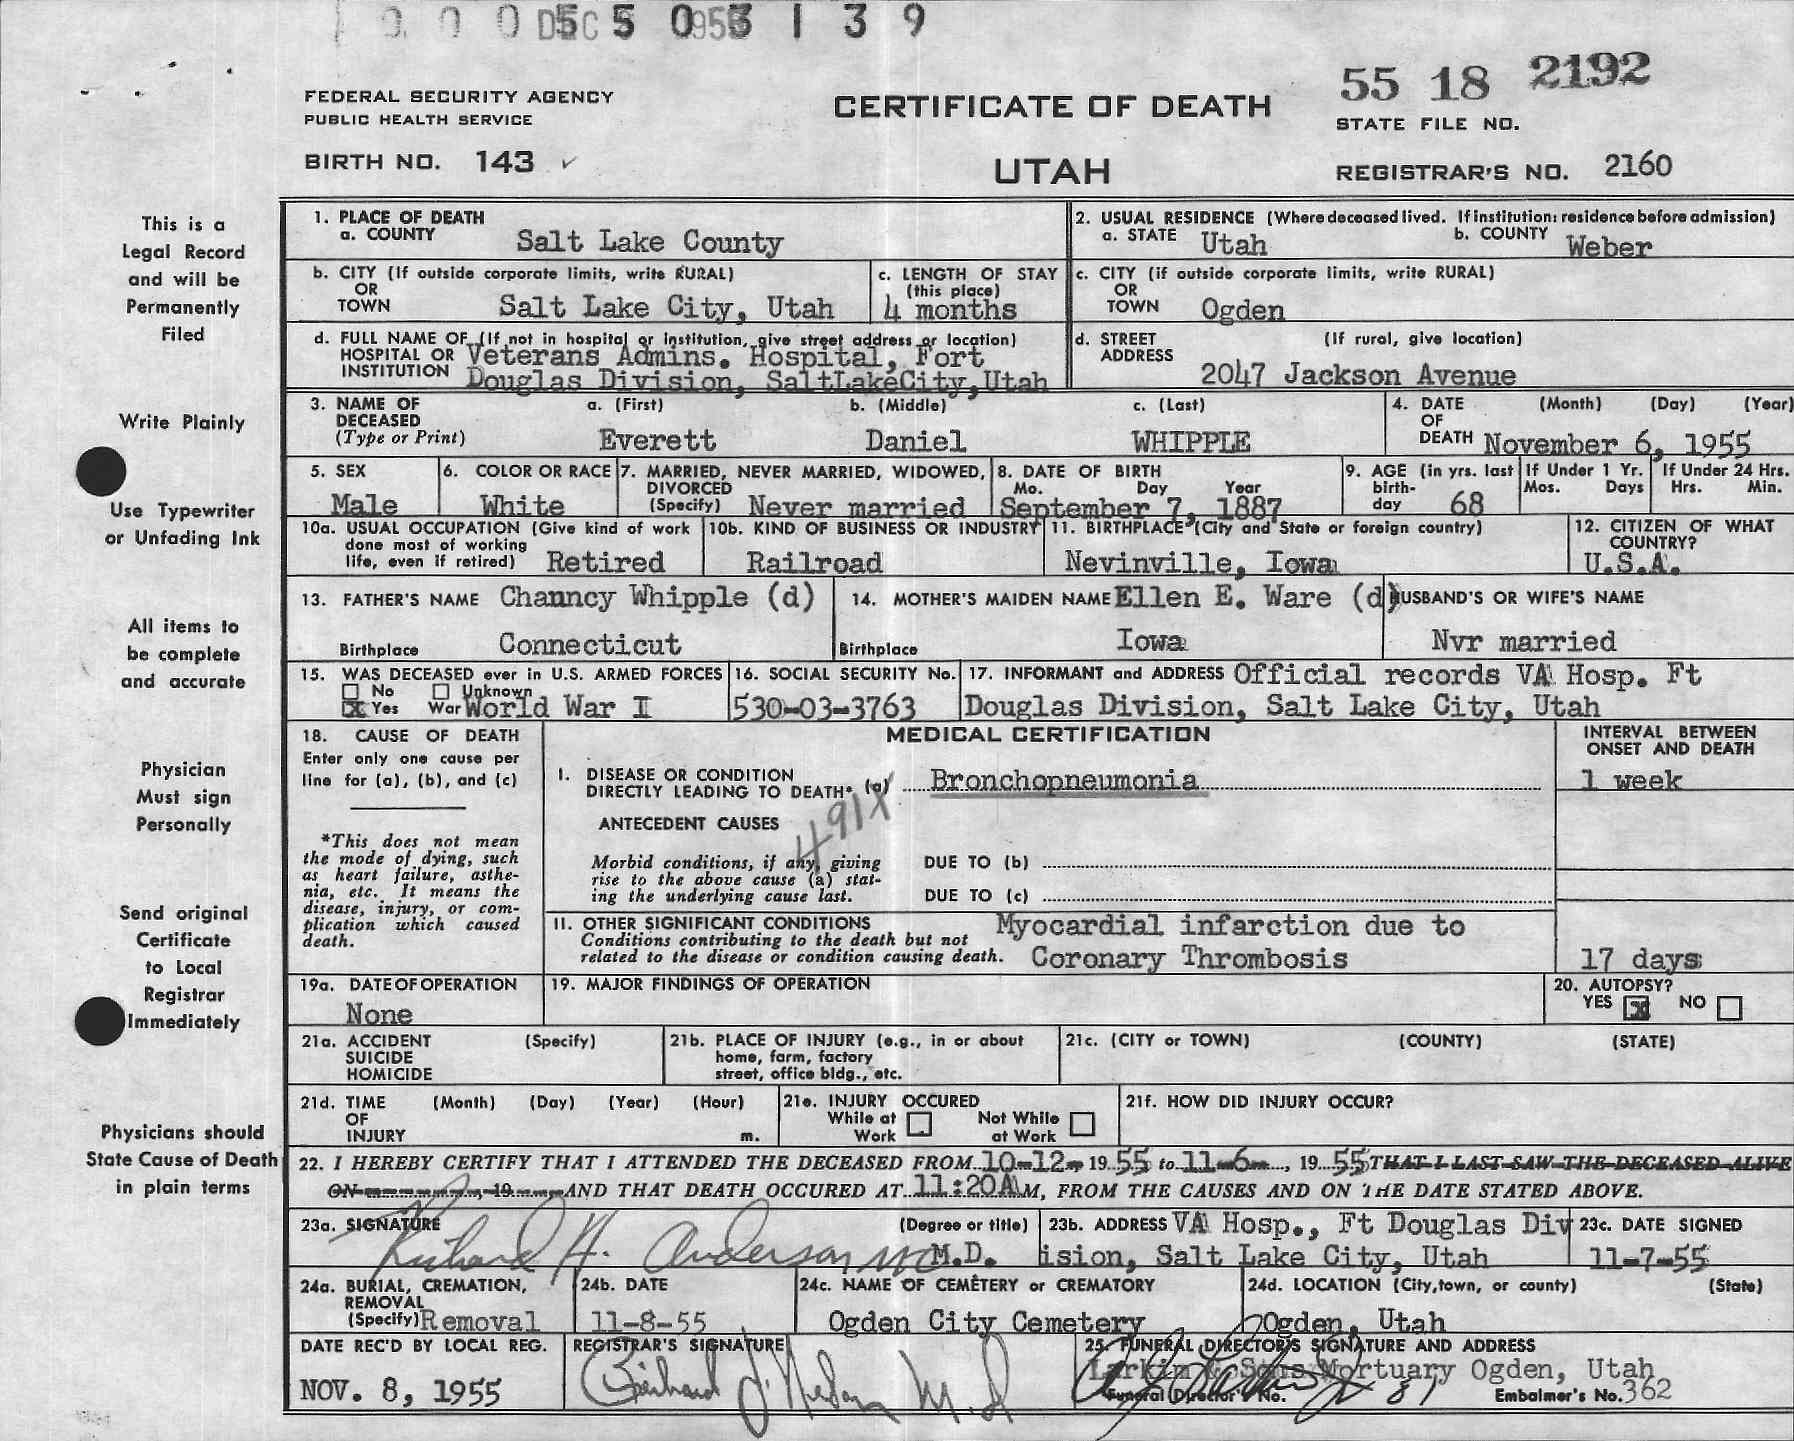 0 0 0 5 5 0 3 1 3 9
DEC 1955
55 18 2192
FEDERAL SECURITY AGENCY
PUBLIC HEALTH SERVICE
CERTIFICATE OF DEATH
STATE FILE NO.
BIRTH NO. 143
UTAH
REGISTRAR'S NO. 2160
This is a
Legal Record
and will be
Permanently
Filed
Write Plainly
Use Typewriter
or Unfading Ink
All items to
be complete
and accurate
Physician
Must sign
Personally
Send original
Certificate
to Local
Registrar
Immediately
Physicians should
State Cause of Death
in plain terms
1. PLACE OF DEATH
a. COUNTY Salt Lake County
2. USUAL RESIDENCE (Where deceased lived. If institution: residence before admission)
a. STATE Utah b. COUNTY Weber
b. CITY (If outside corporate limits, write RURAL)
OR
TOWN Salt Lake City, Utah
c. LENGTH OF STAY
(this place)
4 months
c. CITY (if outside corporate limits, write RURAL)
OR
TOWN Ogden
d. FULL NAME OF (If not in hospital or institution, give street address or location)
HOSPITAL OR Veterans Admins. Hospital, Fort
INSTITUTION Douglas Division, SaltLakeCity,Utah
d. STREET (If rural, give location)
ADDRESS
2047 Jackson Avenue
3. NAME OF a. (First) b. (Middle) c. (Last)
DECEASED
(Type or Print) Everett Daniel WHIPPLE
4. DATE (Month) (Day) (Year)
OF
DEATH November 6, 1955
5. SEX
Male
6. COLOR OR RACE
White
7. MARRIED, NEVER MARRIED, WIDOWED,
DIVORCED
(Specify) Never married
8. DATE OF BIRTH
Mo. Day Year
September 7, 1887
9. AGE (in yrs. last
birth-
day 68
If Under 1 Yr.
Mos. Days
If Under 24 Hrs.
Hrs. Min.
10a. USUAL OCCUPATION (Give kind of work
done most of working
life, even if retired) Retired
10b. KIND OF BUSINESS OR INDUSTRY
Railroad
11. BIRTHPLACE (City and State or foreign country)
Nevinville, Iowa
12. CITIZEN OF WHAT
COUNTRY?
U.S.A.
13. FATHER'S NAME Channcy Whipple (d)
Birthplace Connecticut
14. MOTHER'S MAIDEN NAME Ellen E. Ware (d)
Birthplace Iowa
HUSBAND'S OR WIFE'S NAME
Nvr married
15. WAS DECEASED ever in U.S. ARMED FORCES
No Unknown
x Yes War World War I
16. SOCIAL SECURITY No.
530-03-3763
17. INFORMANT and ADDRESS Official records VA Hosp. Ft
Douglas Division, Salt Lake City, Utah
18. CAUSE OF DEATH
Enter only one cause per
line for (a), (b), and (c)
*This does not mean
the mode of dying, such
as heart failure, asthe-
nia, etc. It means the
disease, injury, or com-
plication which caused
death.
MEDICAL CERTIFICATION
INTERVAL BETWEEN
ONSET AND DEATH
I. DISEASE OR CONDITION
DIRECTLY LEADING TO DEATH* (a) Bronchopneumonia
1 week
491X
ANTECEDENT CAUSES
Morbid conditions, if any, giving
rise to the above cause (a) stat-
ing the underlying cause last.
DUE TO (b)
DUE TO (c)
II. OTHER SIGNIFICANT CONDITIONS
Conditions contributing to the death but not
related to the disease or condition causing death.
Myocardial infarction due to
Coronary Thrombosis
17 days
19a. DATE OF OPERATION
None
19. MAJOR FINDINGS OF OPERATION
20. AUTOPSY?
YES x NO
21a. ACCIDENT (Specify)
SUICIDE
HOMICIDE
21b. PLACE OF INJURY (e.g., in or about
home, farm, factory
street, office bldg., etc.
21c. (CITY or TOWN) (COUNTY) (STATE)
21d. TIME (Month) (Day) (Year) (Hour)
OF
INJURY m.
21e. INJURY OCCURED
While at Not While
Work at Work
21f. HOW DID INJURY OCCUR?
22. I HEREBY CERTIFY THAT I ATTENDED THE DECEASED FROM 10-12- 1955 to 11-6-, 1955 THAT I LAST SAW THE DECEASED ALIVE
ON 19 AND THAT DEATH OCCURED AT 11:20AM, FROM THE CAUSES AND ON THE DATE STATED ABOVE.
23a. SIGNATURE (Degree or title)
Richard H. Anderson MD M.D.
23b. ADDRESS VA Hosp., Ft Douglas Div
ision, Salt Lake City, Utah
23c. DATE SIGNED
11-7-55
24a. BURIAL, CREMATION,
REMOVAL
(Specify) Removal
24b. DATE
11-8-55
24c. NAME OF CEMETERY or CREMATORY
Ogden City Cemetery
24d. LOCATION (City, town, or county) (State)
Ogden, Utah
DATE REC'D BY LOCAL REG.
NOV. 8, 1955
REGISTRAR'S SIGNATURE
M.D
25. FUNERAL DIRECTOR'S SIGNATURE AND ADDRESS
Larkin & Sons Mortuary Ogden, Utah
Funeral Director's No. 81 Embalmer's No. 362